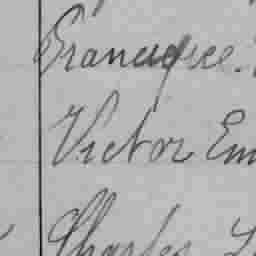 Francisce
Victor Em
Charles L